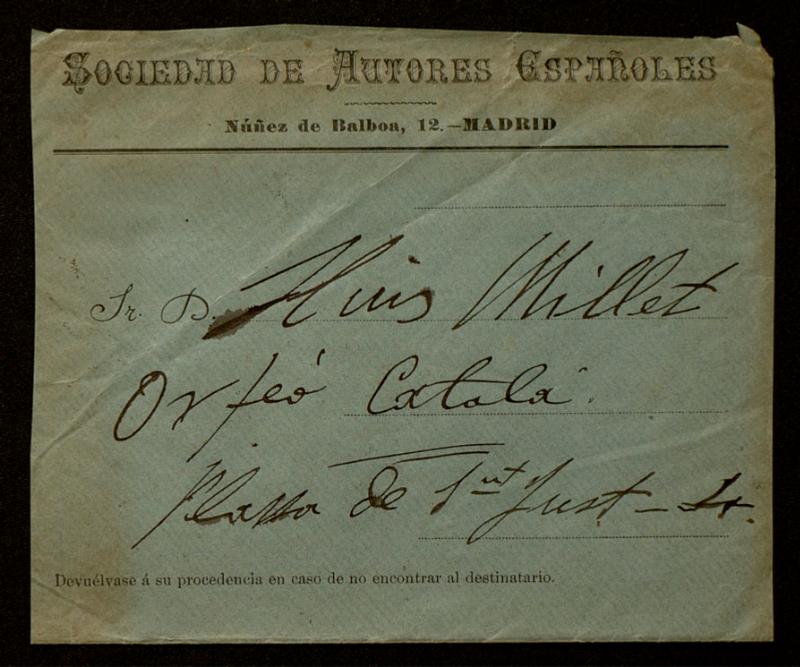 SOCIEDAD DE AUTORES ESPAÑOLES
Núñez de Balboa, 12.—MADRID
Sr. D. Lluis Millet
Orfeó Catalá.
Plassa de Snt Just - 4.
Devuélvase á su procedencia en caso de no encontrar al destinatario.